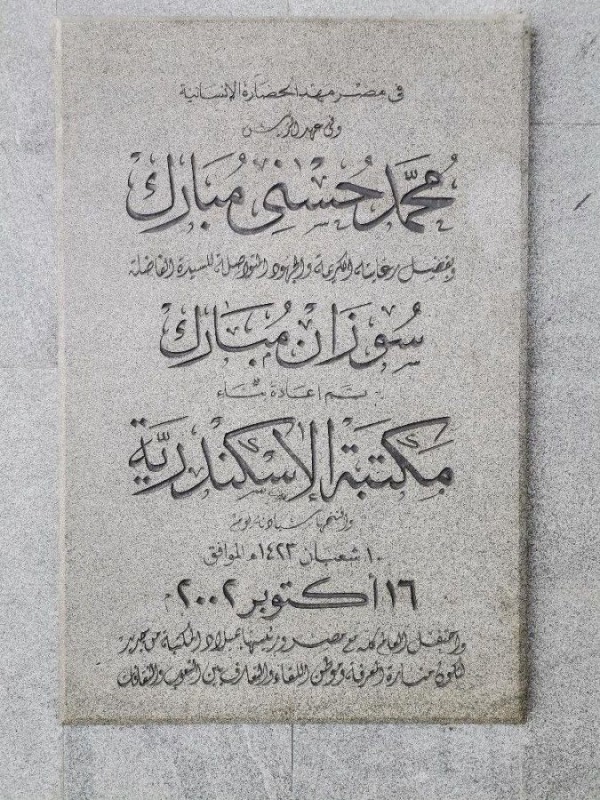 في مصر مهد الحضارة الإنسانية
وفي عهد الرئيس
محمد حسني مبارك
وبفضل رعايته الكريمة والجهود المتواصلة للسيدة الفاضلة
سوزان مبارك
تم إعادة بناء
مكتبة الإسكندرية
وافتتحها سيادته يوم
١٠ شعبان ١٤٢٣هـ الموافق
١٦ أكتوبر ٢٠٠٢م
واحتفل العالم كله مع مصر ورئيسها بميلاد المكتبة من جديد
لتكون منارة المعرفة وموطن اللقاء والتعارف بين الشعوب والثقافات